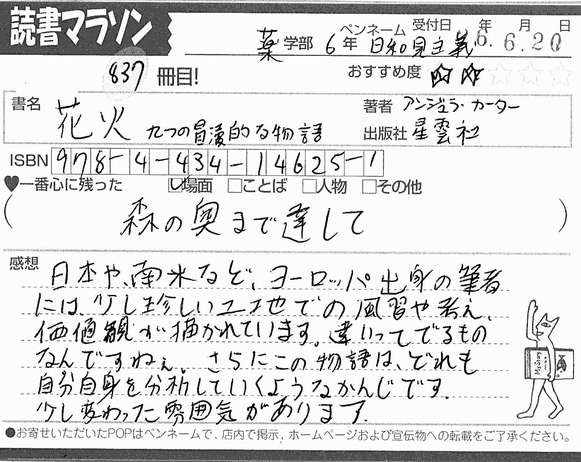 読書マラソン
薬 学部 6年 ペンネーム 日和見主義 受付日 年 月 日 6.6.20
837 冊目! おすすめ度 ☆☆☆☆☆
書名 花火 九つの冒涜的な物語
著者 アンジェラ・カーター
出版社 星雲社
ISBN 978-4-434-14625-1
♥一番心に残った ☑場面 □ことば □人物 □その他
(森の奥まで達して)
感想
日本や、南米など、ヨーロッパ出身の筆者
には、少し珍しい土地での風習や考え、
価値観が描かれています。違いってでるもの
なんですねぇ。さらにこの物語は、どれも
自分自身を分析していくようなかんじです。
少し変わった雰囲気があります。
●お寄せいただいたPOPはペンネームで、店内で掲示、ホームページおよび宣伝物への転載をご了承ください。